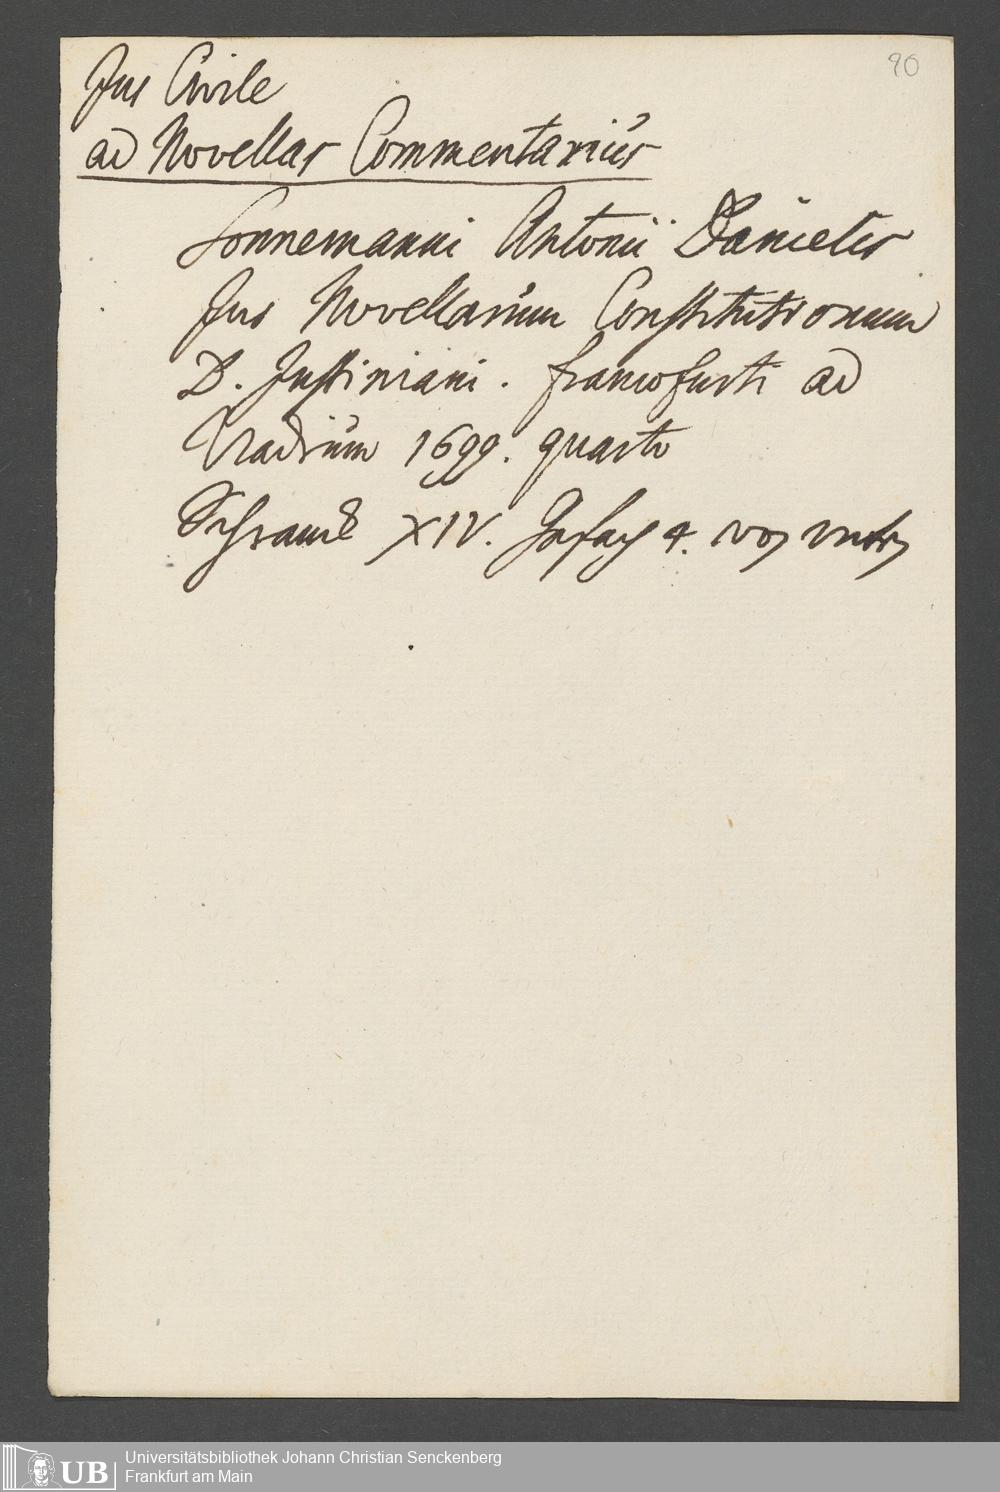 90
Jus Civile
ad Novellas Commentarius
Sonnemanni Antonii Danielis
Jus Novellarum Constitutionum
D. Justiniani. francofurti ad
Viadrum 1699. quarto
Schranck XIV. Gefach 4. von unten
UB Universitätsbibliothek Johann Christian Senckenberg
Frankfurt am Main